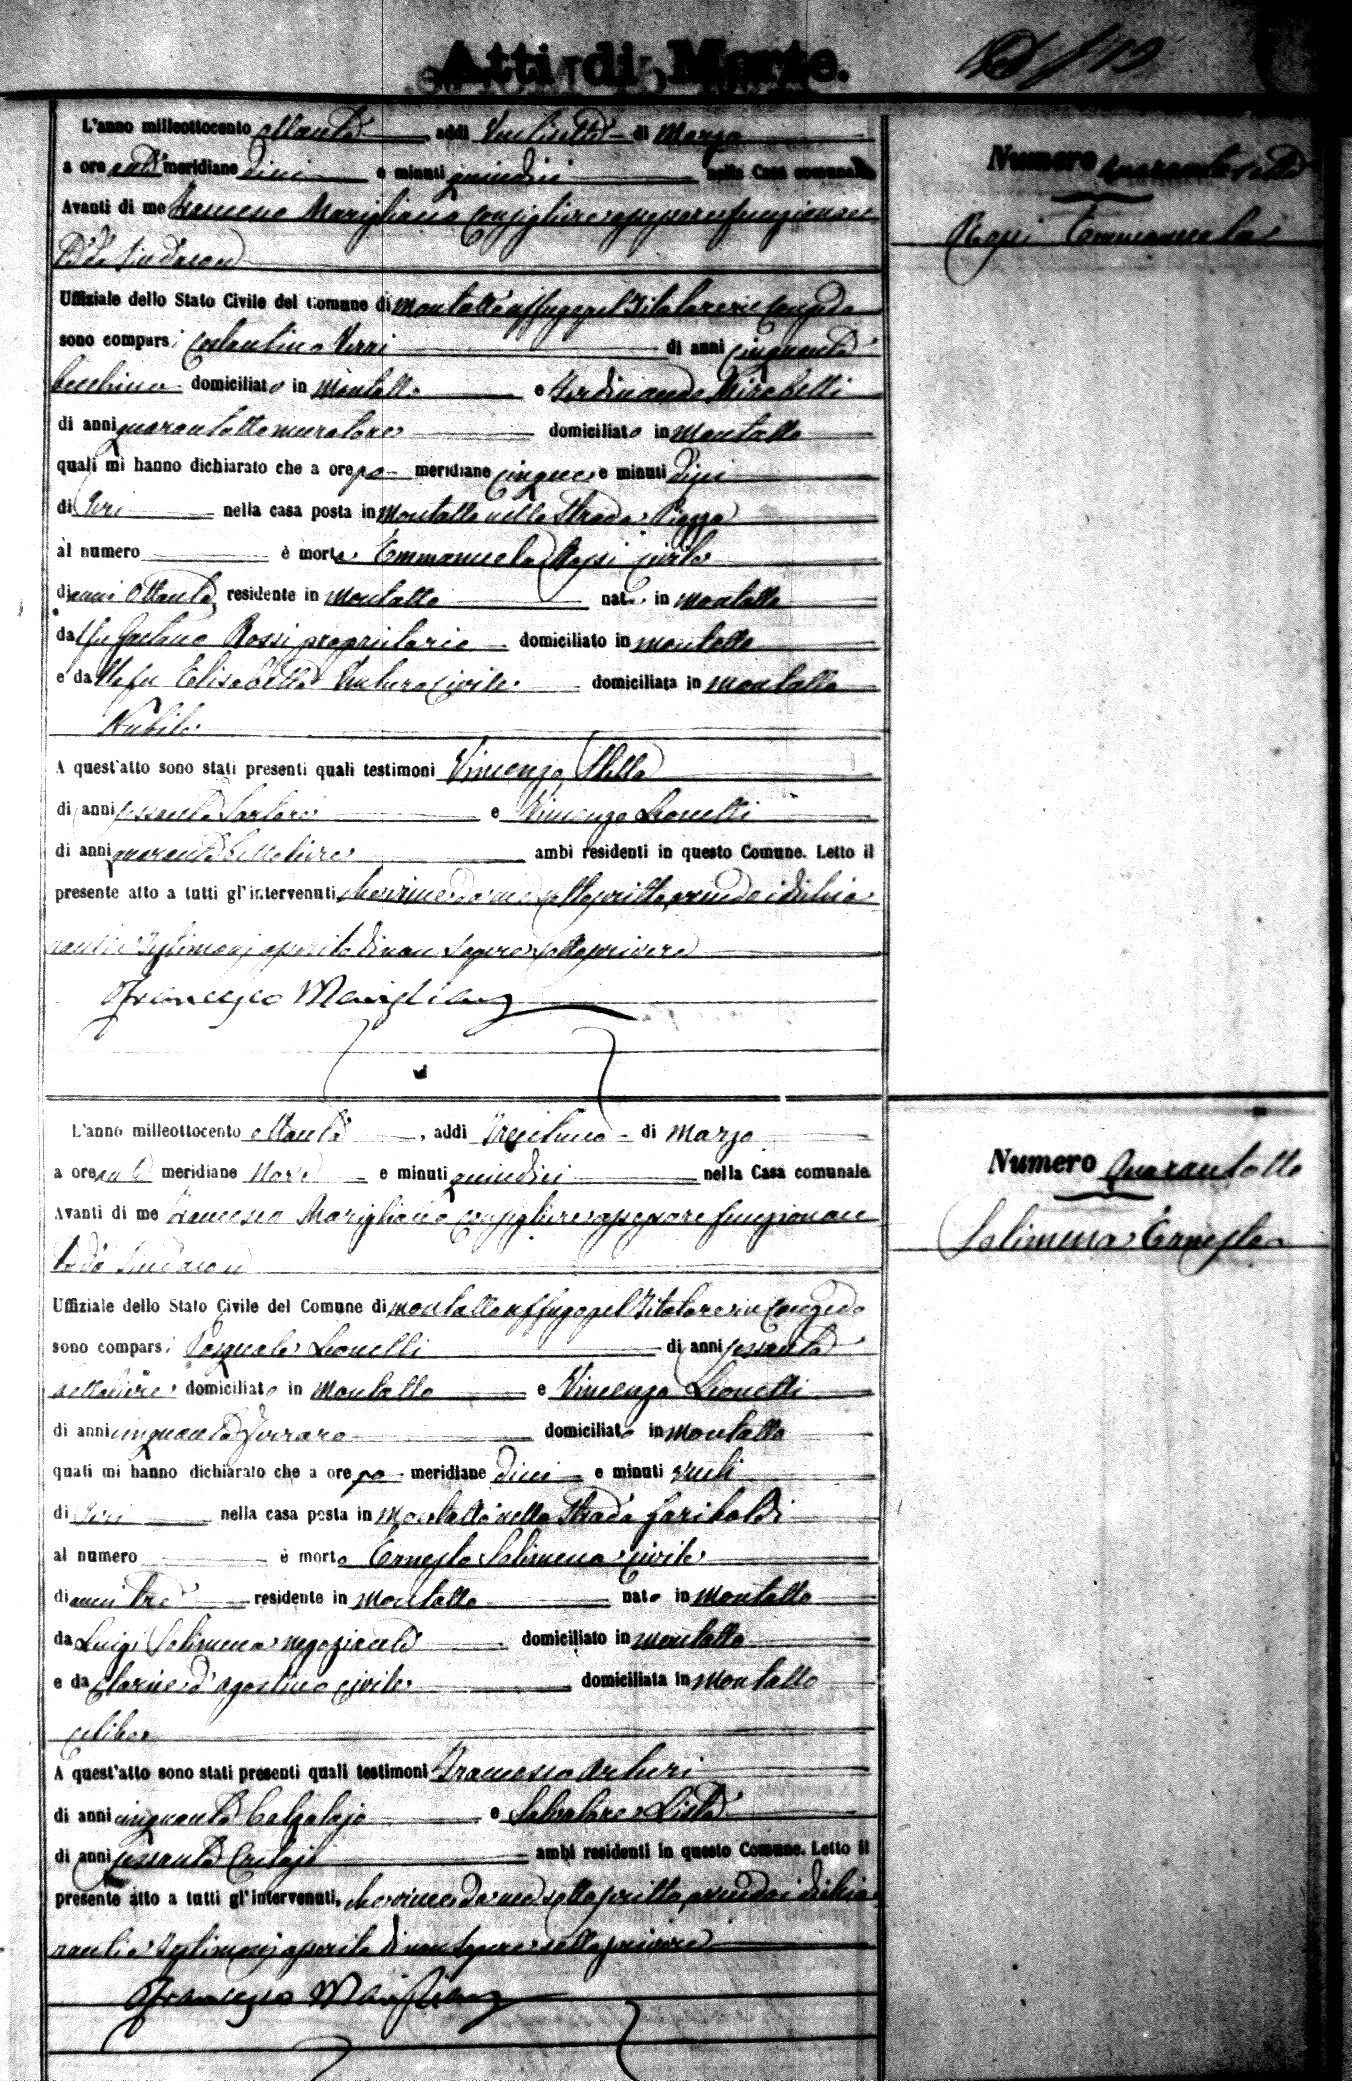 Atti di Morte.
L'anno milleottocento ottanta addì Ventisette di Marzo
a ore anti meridiane dieci e minuti quindici nella Casa comunale
Avanti di me Francesco Marigliano Consigliere assessore funzionan
te da Sindaco
Uffiziale dello Stato Civile del Comune di Montalto Uffugo pel Titolare in Congedo
sono comparsi Costantino Verri di anni cinquanta
becchino domiciliato in Montalto e Ferdinando Mirabelli
di anni quarantotto muratore domiciliato in Montalto
quali mi hanno dichiarato che a ore po meridiane cinque e minuti dieci
di Ieri nella casa posta in Montalto nella Strada Piazza
al numero è morta Emmanuela Rossi civile
di anni ottanta residente in Montalto nata in Montalto
da fu Gaetano Rossi proprietario domiciliato in Montalto
e da lla fu Elisabetta Ventura civile domiciliata in Montalto
Nubile
A quest'atto sono stati presenti quali testimoni Vincenzo Stella
di anni sessanta Sartore e Vincenzo Leonetti
di anni quaranta bettoliere ambi residenti in questo Comune. Letto il
presente atto a tutti gl'intervenuti che viene da me sottoscritto, avendo i dichia
ranti e Testimonj asserito di non sapere sottoscrivere
Francesco Marigliano
Numero Quarantasette
Rossi Emmanuela
L'anno milleottocento ottanta, addì Trentuno di Marzo
a ore anti meridiane Nove e minuti quindici nella Casa comunale
Avanti di me Francesco Marigliano Consigliere assessore funzionan
te da Sindaco
Uffiziale dello Stato Civile del Comune di Montalto Uffugo pel Titolare in Congedo
sono comparsi Pasquale Leonetti di anni sessanta
bettoliere domiciliato in Montalto e Vincenzo Leonetti
di anni cinquanta ferraro domiciliato in Montalto
quali mi hanno dichiarato che a ore po meridiane dieci e minuti venti
di Ieri nella casa posta in Montalto nella Strada Garibaldi
al numero è morto Ernesto Solimena civile
di anni tre residente in Montalto nato in Montalto
da Luigi Solimena negoziante domiciliato in Montalto
e da Clorinda d'Agostino civile domiciliata in Montalto
celibe
A quest'atto sono stati presenti quali testimoni Francesco Arturi
di anni cinquanta Calzolajo e Salvatore Lista
di anni sessanta Cretajo ambi residenti in questo Comune. Letto il
presente atto a tutti gl'intervenuti, che viene da me sottoscritto, avendo i dichia
ranti e Testimonj asserito di non sapere sottoscrivere
Francesco Marigliano
Numero Quarantotto
Solimena Ernesto